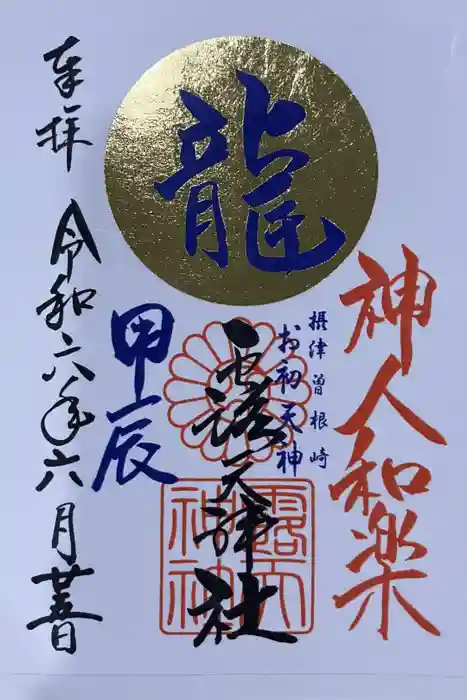 龍
神人和楽
摂津曽根崎
お初天神
露天神社
露天
神社
甲辰
奉拝 令和六年六月廿五日